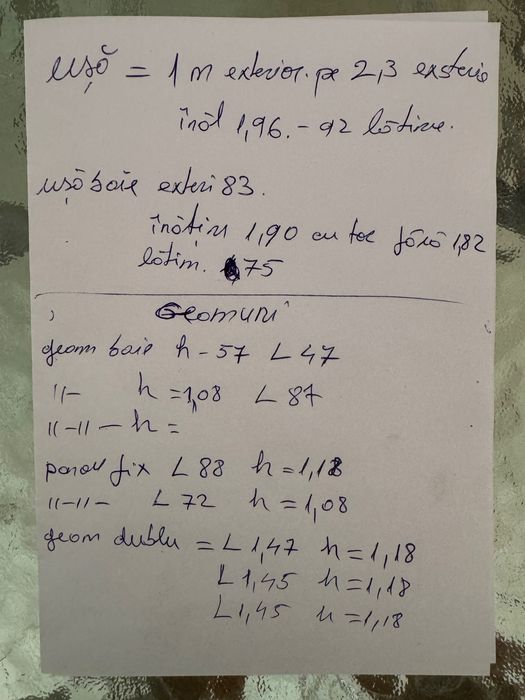 ușă = 1 m exterior. pe 2,3 exsterio
înăl 1,96. - 92 lătime.
ușă baie exteri 83.
înățim 1,90 cu toc fără 1,82
lătim. 75
Geomuri
geam baie h - 57 L 47
11- h = 1,08 L 87
11-11- h =
panou fix L 88 h = 1,18
11-11- L 72 h = 1,08
geom dublu = L 1,47 h = 1,18
L 1,45 h = 1,18
L 1,45 h = 1,18